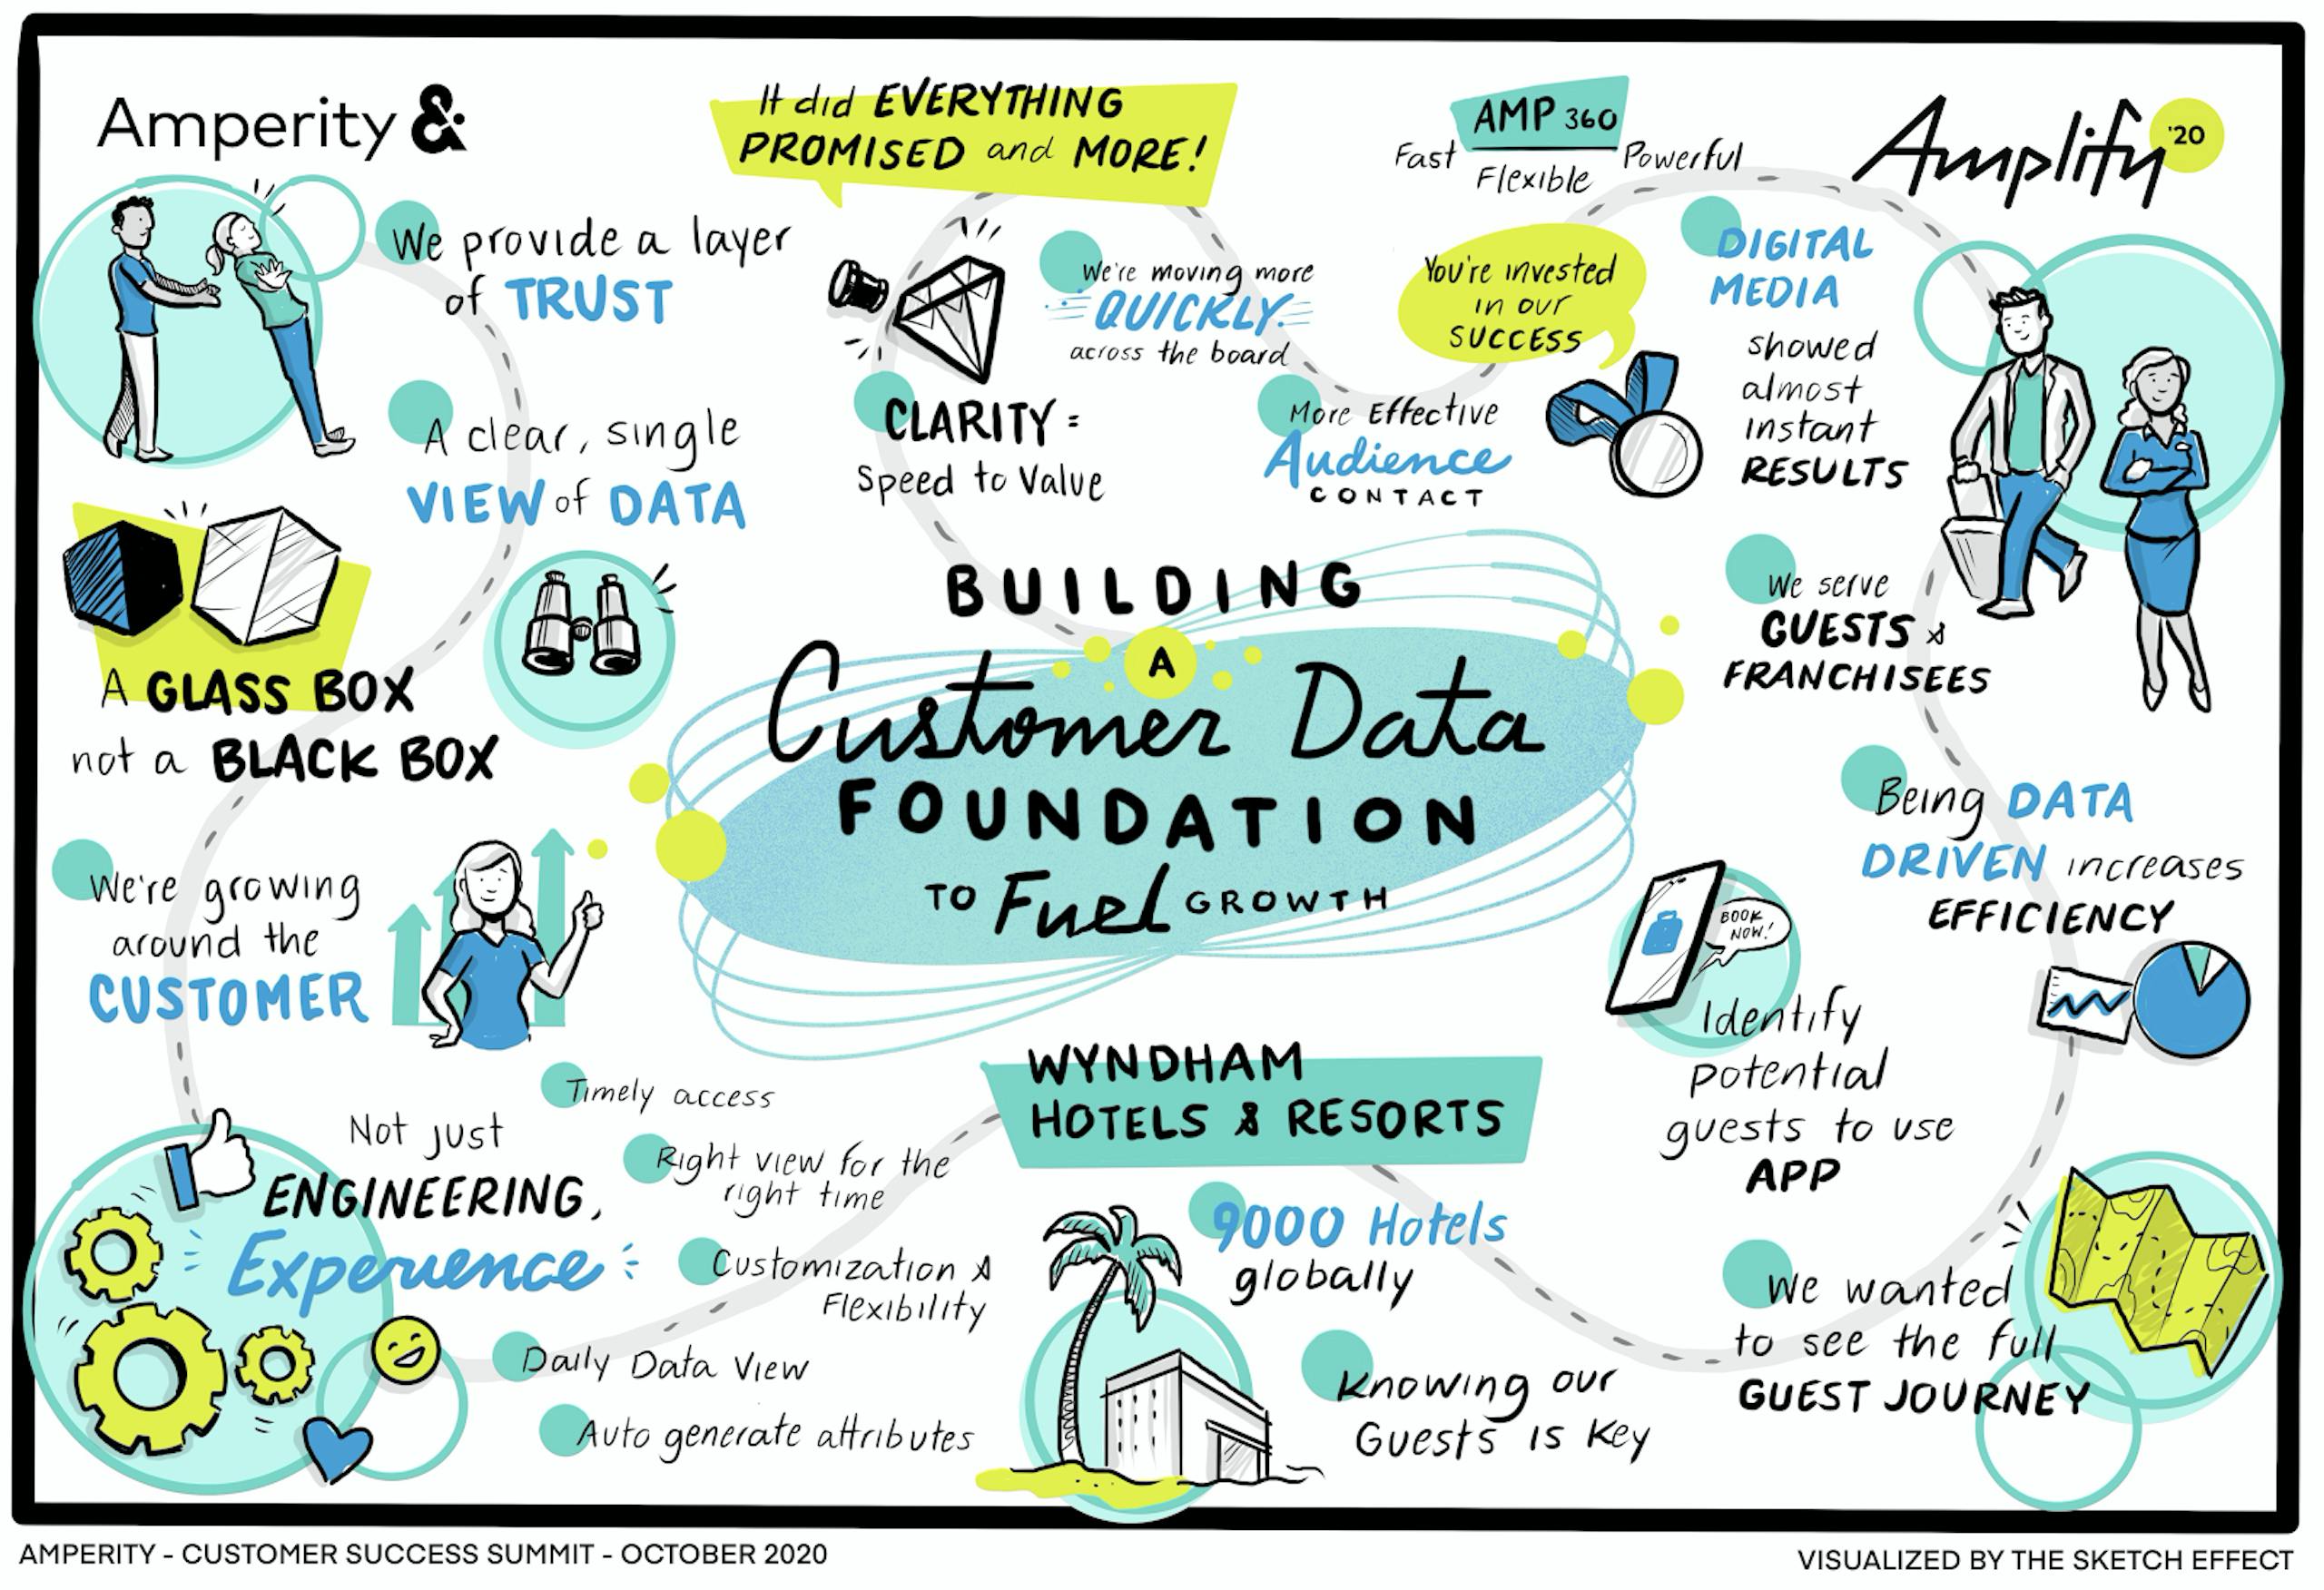 Amperity &
It did EVERYTHING
PROMISED and MORE!
AMP 360
Fast Flexible Powerful
Amplify '20
We provide a layer
of TRUST
A clear, single
VIEW of DATA
A GLASS BOX
not a BLACK BOX
We're growing
around the
CUSTOMER
Not just
ENGINEERING,
Experience
Timely access
Right view for the
right time
Customization &
Flexibility
Daily Data View
Auto generate attributes
We're moving more
QUICKLY
across the board
CLARITY =
Speed to Value
More Effective
Audience
CONTACT
You're invested
in our
SUCCESS
DIGITAL
MEDIA
showed
almost
instant
RESULTS
We serve
GUESTS &
FRANCHISEES
BUILDING
A
Customer Data
FOUNDATION
TO Fuel GROWTH
Being DATA
DRIVEN increases
EFFICIENCY
BOOK
NOW!
Identify
potential
guests to use
APP
WYNDHAM
HOTELS & RESORTS
9000 Hotels
globally
Knowing our
Guests is Key
We wanted
to see the full
GUEST JOURNEY
AMPERITY - CUSTOMER SUCCESS SUMMIT - OCTOBER 2020
VISUALIZED BY THE SKETCH EFFECT